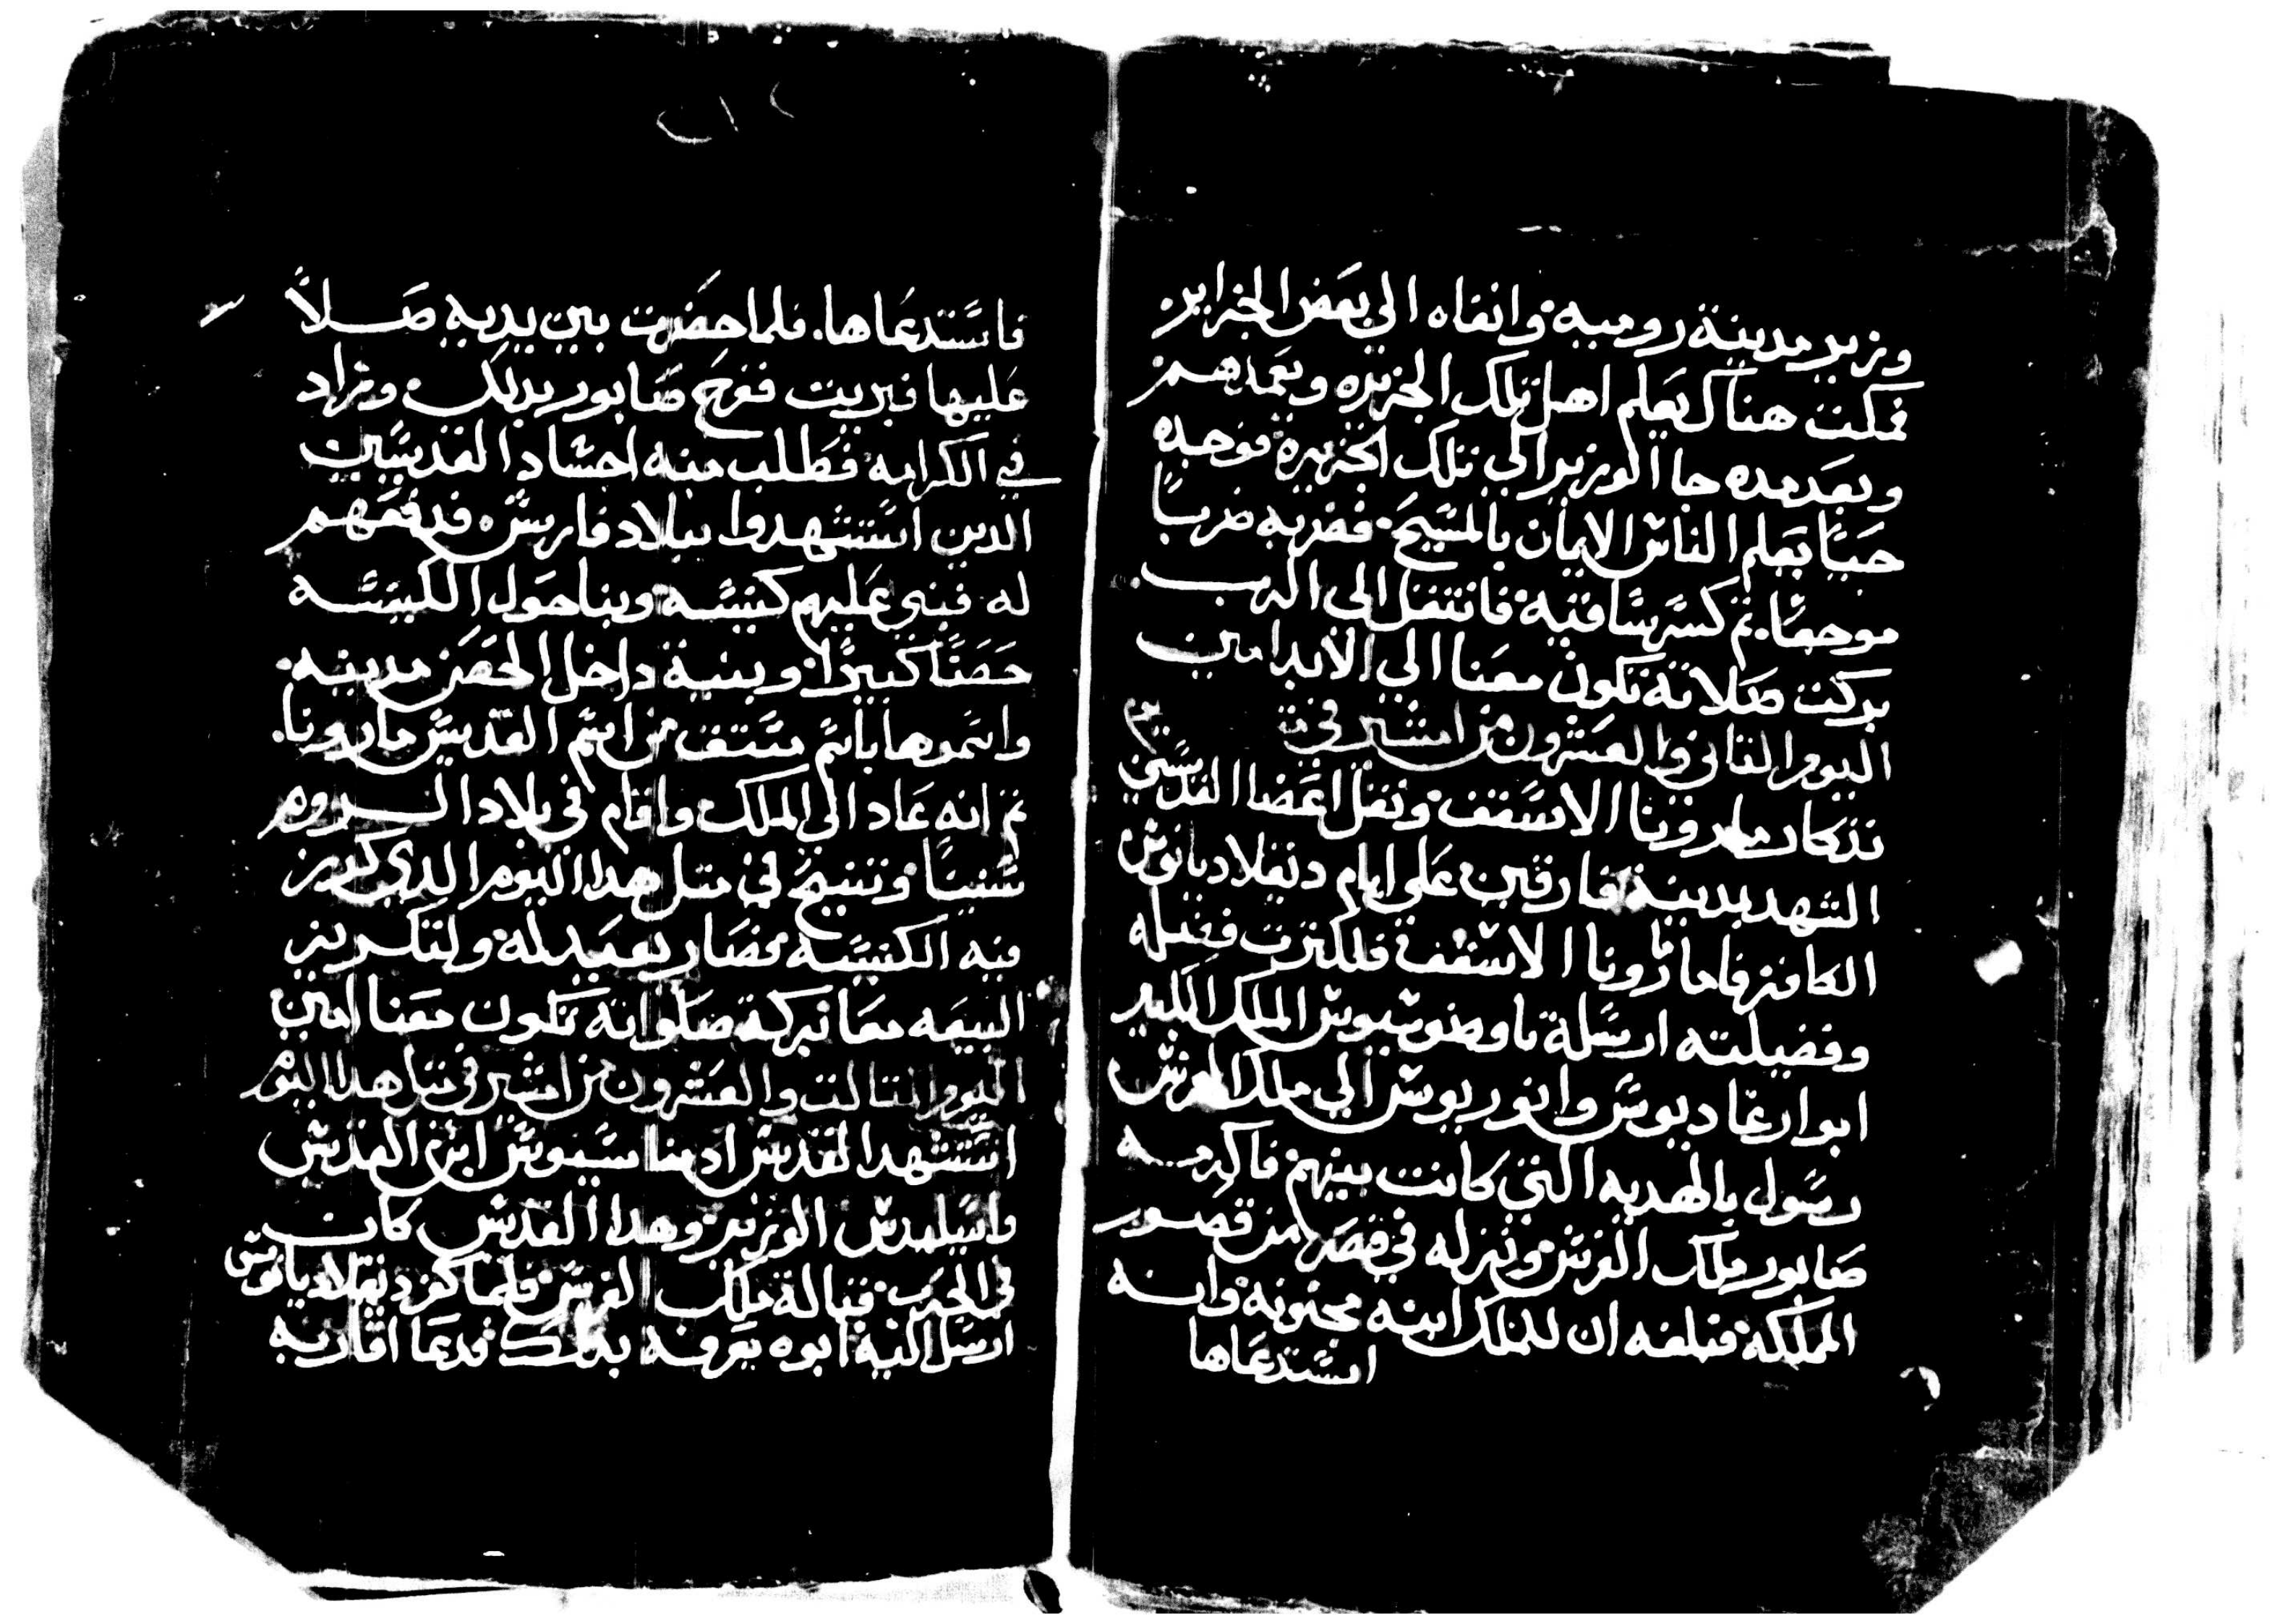 وزير مدينة روميه وانفاه الي بعض الجزاير
فمكت هناك يعلم اهل تلك الجزيره ويعمدهم
وبعد مده جا الوزير الي تلك الجزيرة فوجده
حيًا يعلم الناس الايمان بالمسيح فضربه ضربًا
موجعًا. ثم كسر ساقيه فانتقل الى الرب
بركت صلاته تكون معنا الي الابد امين
اليوم الثاني والعشرون من امشير في مثله
تذكار ماروتا الاسقف ونقل اعضا القديسين
الشهد بمدينة فارقين علي ايام دقلاديانوس
الكافر فاماروتا الاسقف فلكثرت فضله
وفضيلته ارسله تاوضوسيوس الملك الكبير
ابو ارغاديوس وانوريوس الي ملك الفرس
رسول بالهديه التي كانت بينهم فاكرمه
صابور ملك الفرس ونزله في قصر من قصور
المملكة فبلغه ان للملك ابنه مجنونه وانه
استدعاها
فاستدعاها. فلما حضرت بين يديه صلاً
عليها فبريت ففرح صابور بدلك وزاد
في الكرامه فطلب منه اجساد القديسين
الدين استشهدوا ببلاد فارس فدفعهم
له فبني عليهم كنيسه وبنا حول الكنيسه
حصنًا كبيرًا وبنية داخل الحصن مدينه.
واسموها باسم مشتق من اسم القديس ماروتا.
ثم انه عاد الي الملك واقام في بلاد الروم
سنينًا وتنيح في متل هدا اليوم الدي كرز
فيه الكنيسه فصار يعيد له ولتكريز
البيعه معًا بركة صلواته تكون معنا امين
اليوم التالت والعشرون من امشير في متل هدا اليوم
استشهد القديس اوسابيوس ابن القديس
واسيليدس الوزير وهدا القديس كان
في الحرب قبالة ملك الفرس فلما كفر دقلاديانوس
ارسل اليه ابوه يعرفه بدلك فدعا اقاربه